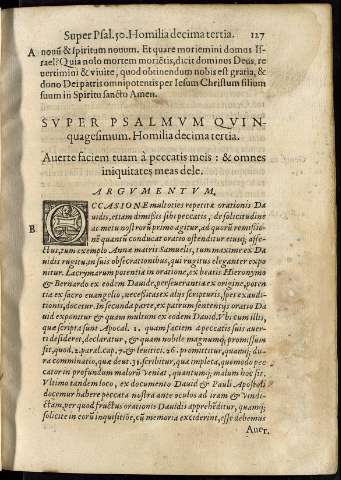 Super Psal.50. Homilia decima tertia. 127
A nouũ & spiritum nouum. Et quare moriemini domus Is-
rael? Quia nolo mortem moriẽtis, dicit dominus Deus, re-
uertimini & viuite, quod obtinendum nobis est gratia, &
dono Dei patris omnipotentis per Iesum Christum filium
suum in Spiritu sancto Amen.
SVPER PSALMVM QVIN-
quagesimum. Homilia decima tertia.
Auerte faciem tuam à peccatis meis: & omnes
iniquitates meas dele.
ARGVMENTVM.
OCCASIONE multoties repetitæ orationis Da
uidis, etiam dimißis sibi peccatis, de solicitudine
ac metu nostrorũ primo agitur, ad quorũ remißio-
B nẽ quanti conducat oratio ostenditur eiusq; affe-
ctus, tum exemplo Annæ matris Samuelis, tum maxime ex Da
uidis rugitu, in suis obsecrationibus, qui rugitus eleganter expo
nitur. Lacrymarum potentia in oratione, ex beatis Hieronymo
& Bernardo ex eodem Dauide, perseuerantia ex origine, poten
tia ex sacro euangelio, necesitas ex alijs scripturis, spes exaudi-
tionis, docetur. In secunda parte, ex patrum sententijs oratio Da
uid exponitur & quam multum ex eodem Dauid. Vbi cum illis,
quæ scripta sunt Apocal. 2. quam faciem à peccatis suis auer-
ti desideret, declaratur, & quam nobile magnumq; promissum
sit, quod, 2. paral. cap. 7. & leuitici. 26. promittitur, quamq; du-
ra comminatio, quæ deut. 31. scribitur, qua impleta, quomodo pec
cator in profundum malorũ veniat, quantumq; malum hoc sit.
Vltimo tandem loco, ex documento Dauid & Pauli. Apostoli
docemur habere peccata nostra ante oculos ad iram & vindi-
ctam, per quod fructus orationis Dauidis apprehẽditur, quamq;
solicite in corũ inquisitiõe, cũ memoria exciderint, esse debemus
Auer.